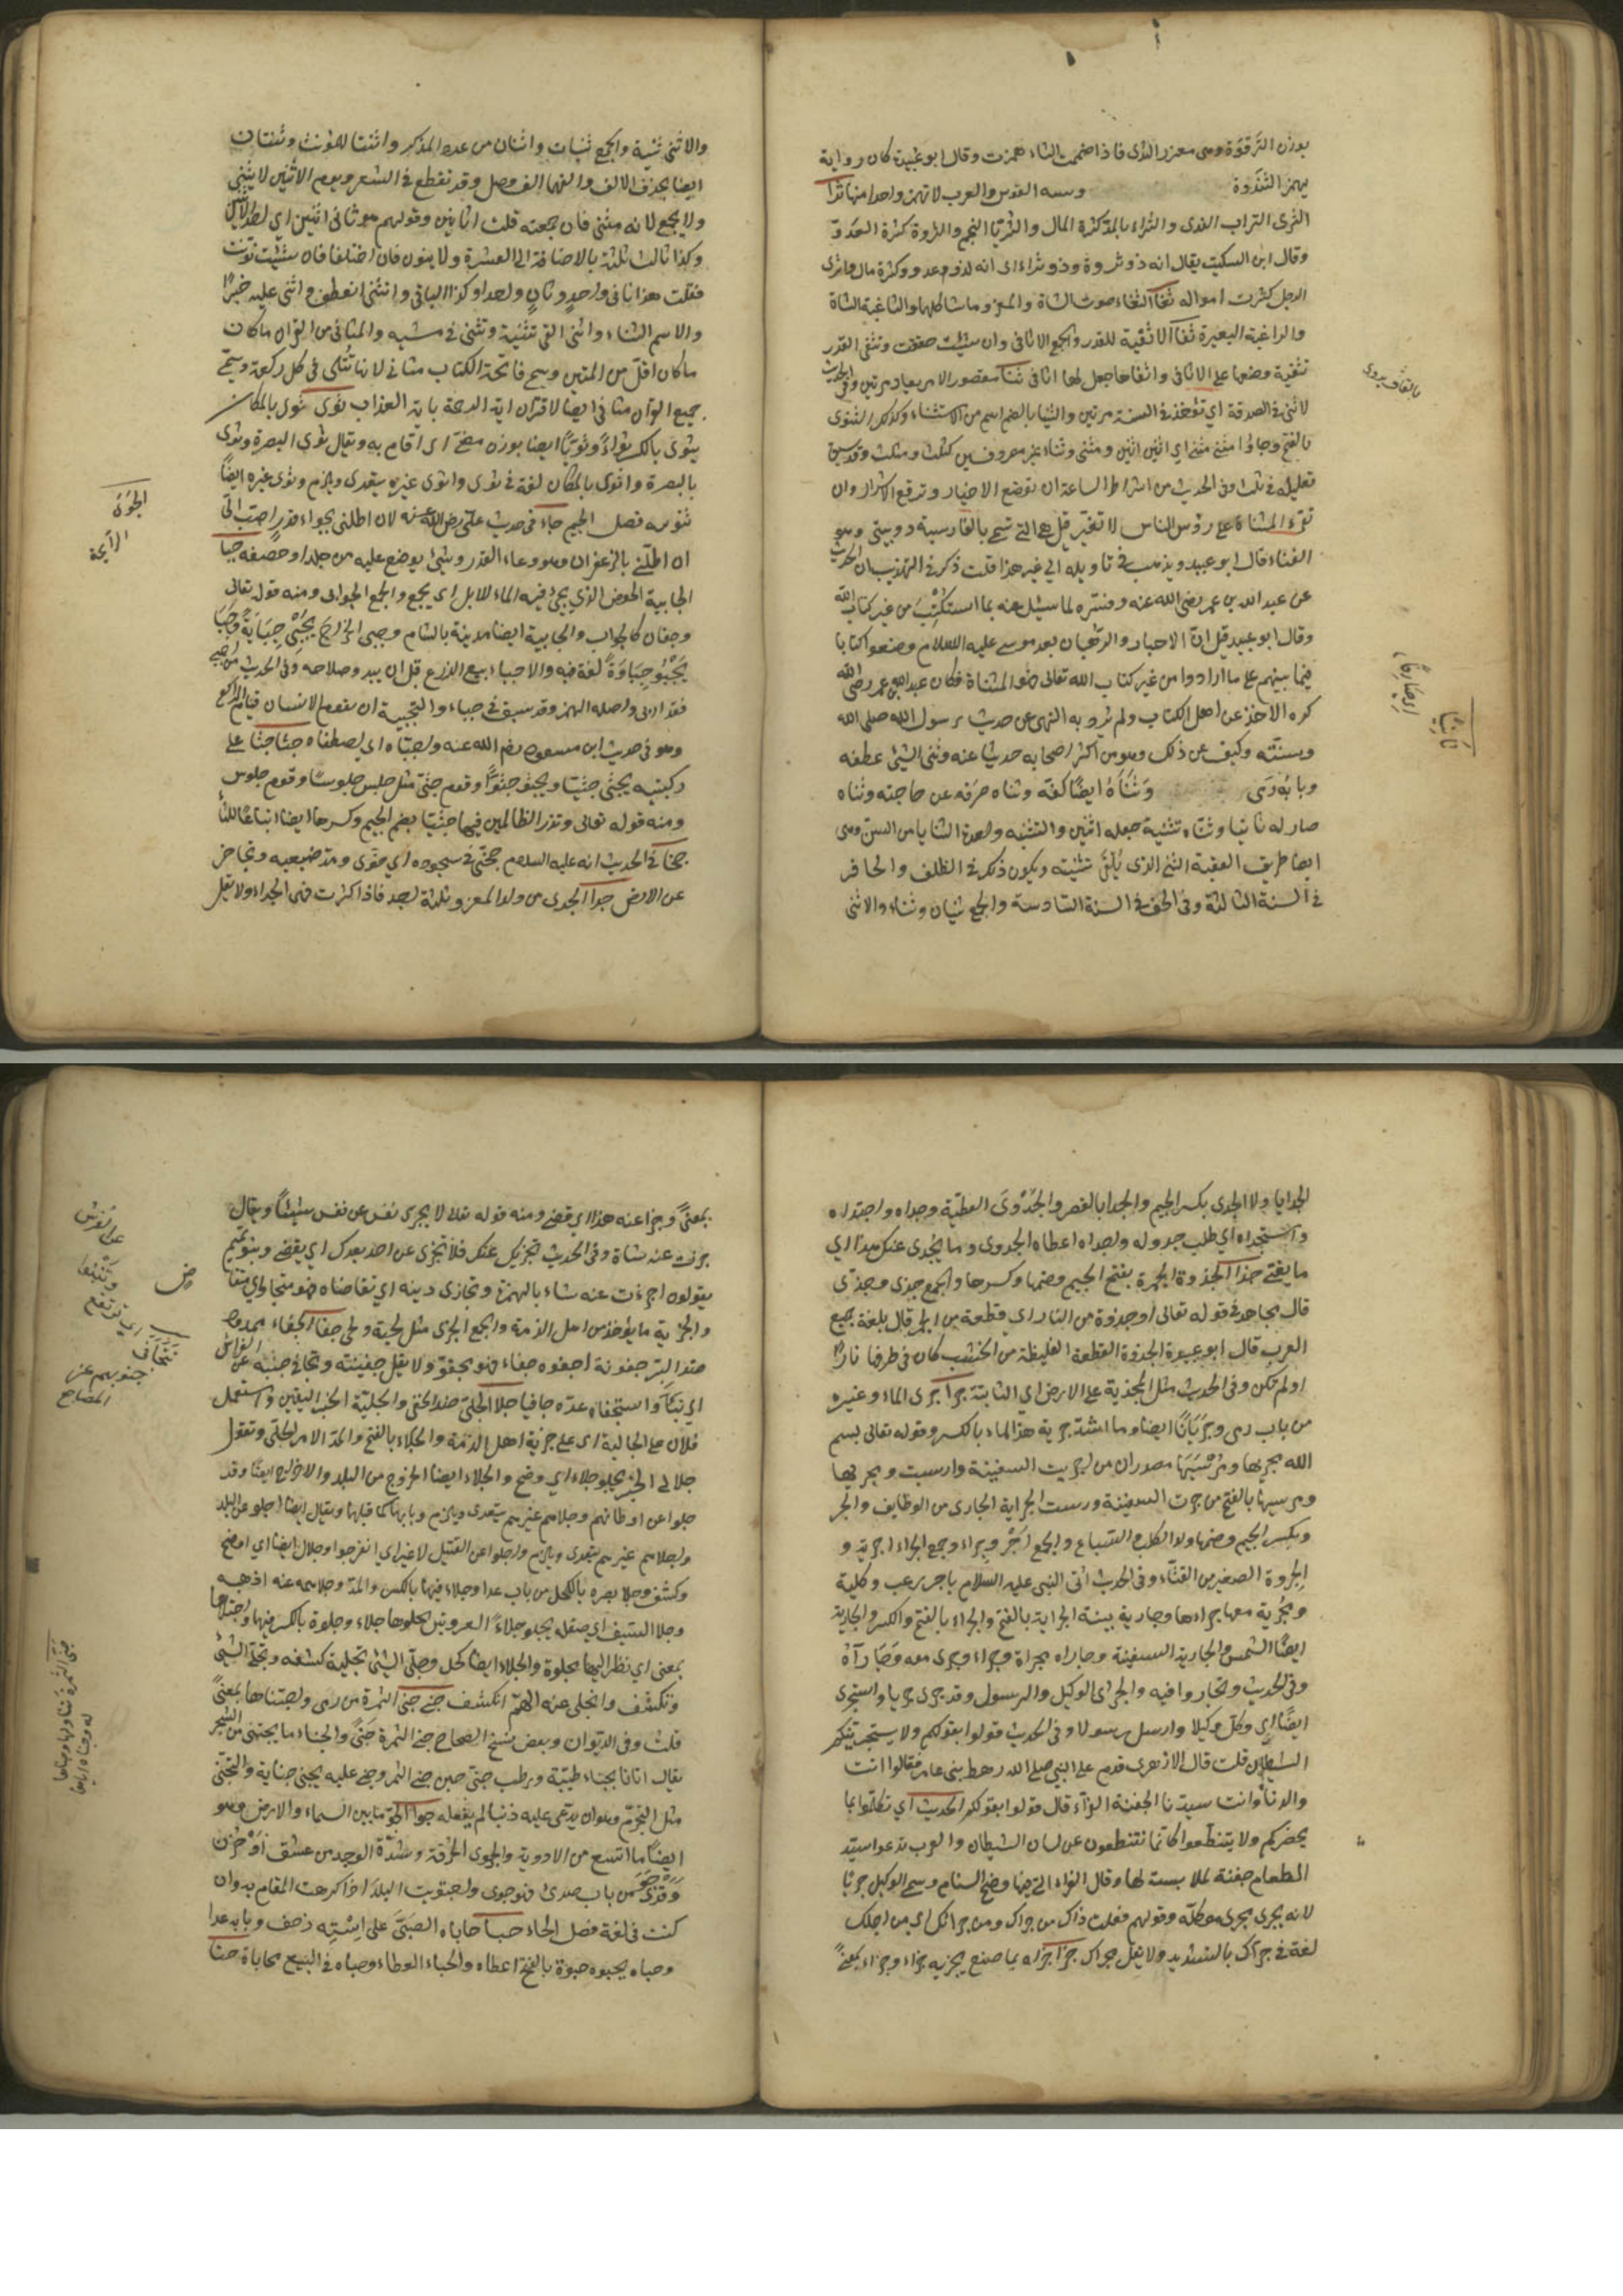 بوزن الترقوة وهي مغرز الثدي فاذا ضممت الثاء همزت وقال ابو عبيدة كان رواية
يهمز الثندوة وسية القوس والعرب لا تهمز واحدا منها ثرا
الثرى التراب الندى والثراء بالمد كثرة المال والثريا النجم والثروة كثرة العدد
وقال ابن السكيت يقال انه ذو ثروة وذو ثراء اى انه لذو عدد وكثرة مال واثرى
الرجل كثرت امواله ثغا الثغاء صوت الشاة والمعز وما شاكلها والثاغية الشاة
والراغية البعيرة ثفا الاثفية للقدر والجمع الاثافى وان شئت خففت وثفى القدر
تثفية وضعها على الاثافى واثفاها جعل لها اثافى ثنا مقصور الامر يعاد مرتين وفى الحديث
لا ثنى فى الصدقة اي تؤخذ فى السنة مرتين والثنيا بالضم اسم من الاستثناء وكذلك الثنوى
بالفتح وجاؤا مثنى مثنى اي اثنين اثنين ومثنى وثناء غير مصروفين كثلث ومثلث وقد سبق
تعليله فى ثلث وفى الحديث من اشراط الساعة ان توضع الاخيار وترفع الاشرار وان
تقرء المثناة على رؤس الناس لا تغير قيل هى التى تسمى بالفارسية دوبيتى وهو
الغناء قال ابو عبيد ويذهب فى تاويله الى غير هذا قلت ذكر فى التهذيب ان الحديث
عن عبد الله بن عمر رضى الله عنه وفسره لما سئل عنه بما استكتب من غير كتاب الله
وقال ابو عبيد قيل ان الاحبار والرهبان بعد موسى عليه السلام وضعوا كتابا
فيما بينهم على ما ارادوا من غير كتاب الله تعالى فهو المثناة فكان عبد الله بن عمر رضى الله
كره الاخذ عن اهل الكتاب ولم يرد به النهى عن حديث رسول الله صلى الله
وسنته وكيف عن ذلك وهو من اكثر اصحابه حديثا عنه وثنى الشئ عطفه
وبابه رمى وثناه ايضا كفه وثناه صرفه عن حاجته وثناه
صار له ثانيا وثناه تثنية جعله اثنين والثنية واحدة الثنايا من السن وهى
ايضا طريق العقبة الثنى الذى يلقى ثنيته ويكون ذلك فى الظلف والحافر
فى السنة الثالثة وفى الخف فى السنة السادسة والجمع ثنيان وثناء والانثى
بالقاف يروى
ثانيا
ايضا
والانثى ثنية والجمع ثنيات واثنان من عدد المذكر واثنتا للمؤنث وثنتان
ايضا بحذف الالف والفهما الف وصل وقد تقطع فى الشعر ويوم الاثنين لا يثنى
ولا يجمع لانه مثنى فان جمعته قلت اثانين وقولهم هو ثانى اثنين اي احد الاثنين
وكذا ثالث ثلثة بالاضافة الى العشرة ولا ينون فان اختلفا فان شئت نونت
فقلت هذا ثانى واحد وثان واحدا وكذا الباقى وانثنى انعطف واثنى عليه خيرا
والاسم الثناء واثنى القى ثنيته وتثنى فى مشيه والمثانى من القرآن ما كان
ما كان اقل من المئين وسمى فاتحة الكتاب مثانى لانها تثنى فى كل ركعة وسمى
جميع القرآن مثانى ايضا لاقتران اية الرحمة باية العذاب ثوى ثوى بالمكان
يثوى بالكسر ثواء وثويا ايضا بوزن مضى اى اقام به ويقال ثوى البصرة وثوى
بالبصرة واثوى بالمكان لغة فى ثوى واثوى غيره يتعدى ويلزم وثوى غيره ايضا
تثوية فصل الجيم جاء فى حديث على رضى الله عنه لان اطلى بجواء قدر احب الى
ان اطلى بالزعفران وهو وعاء القدر وشئ يوضع عليه من جلد او خصفه جبا
الجابية الحوض الذي يجبى فيه الماء للابل اى يجمع والجمع الجوابى ومنه قوله تعالى
وجفان كالجواب والجابية ايضا مدينة بالشام وجبى الخراج يجبى جباية وجبا
يجبو جباوة لغة فيه والاجباء بيع الزرع قبل ان يبدو صلاحه وفى الحديث من اجبى
فقد اربى واصله الهمز وقد سبق فى جباء والتجبية ان يقوم الانسان قيام الراكع
وهو فى حديث ابن مسعود رضى الله عنه واجتباه اي اصطفاه جثا جثا على
ركبتيه يجثى جثيا ويجثو جثوا وقوم جثى مثل جلس جلوسا وقوم جلوس
ومنه قوله تعالى ونذر الظالمين فيها جثيا بضم الجيم وكسرها ايضا اتباعا للثاء
جخا فى الحديث انه عليه السلام جخى فى سجوده اي خوى ومد ضبعيه وتجافى
عن الارض جدا الجدى من ولد المعز وثلثة اجد فاذا كثرت فهى الجداء ولا تقل
الجوى
الرايحة
الجدايا ولا الجدى بكسر الجيم والجدا بالقصر والجدوى العطية وجداه واجتداه
واستجداه اي طلب جدوله واجداه اعطاه الجدوى وما يجدى عنك هذا اي
ما يغنى جذا الجذوة الجمرة بفتح الجيم وضمها وكسرها والجمع جذى وجذى
قال مجاهد فى قوله تعالى او جذوة من النار اي قطعة من الجمر قال بلغة جميع
العرب قال ابو عبيدة الجذوة القطعة الغليظة من الخشب كان فى طرفها نار
او لم تكن وفى الحديث مثل المجذية على الارض اي الثابتة جرا جرى الماء وغيره
من باب رمى وجريانا ايضا وما اشد جرية هذا الماء بالكسر وقوله تعالى بسم
الله مجريها ومرسيها مصدران من اجريت السفينة وارسيت ومجريها
ومرسيها بالفتح من جرت السفينة ورست الجراية الجارى من الوظايف والجر
وبكسر الجيم وضمها ولد الكلب والسباع والجمع اجر وجراء وجمع الجراء اجرية و
الجروة الصغير من القثاء وفى الحديث اتى النبى عليه السلام باجر زغب وكلبة
ومجرية معها جراءها وجارية بينة الجراية بالفتح والجراء بالفتح والكسر والجارية
ايضا الشمس والجارية السفينة وجاراه مجاراة وجراء وجرى معه وتجاراه
وفى الحديث وتجاروا فيه والجرى الوكيل والرسول وقد جرى جريا واستجرى
ايضا اي وكل وكيلا وارسل رسولا وفى الحديث قولوا بقولكم ولا يستجرينكم
الشيطان قلت قال الازهرى قدم على النبى صلى الله رهط بنى عامر فقالوا انت
والدنا وانت سيدنا الجفنة الغراء قال قولوا بقولكم الحديث اي تكلموا بما
يحضركم ولا تتنطعوا كانما تنطقون عن لسان الشيطان والعرب تدعو السيد
المطعام جفنة لملابسته لها وقال الغراء التى فيها وضح السنام وسمى الوكيل جريا
لانه يجرى مجرى موكله وقولهم فعلت ذاك من جراك ومن جرائك اي من اجلك
لغة فى جراك بالتشديد ولا تقل مجراك جزا جزاه بما صنع يجزيه جزاء وجازاه بمعنى
بمعنى وجزا عنه هذا اى قضى ومنه قوله تعالى لا تجزى نفس عن نفس شيئا ويقال
جزت عنه شاة وفى الحديث تجزيك عنك ولا تجزى عن احد بعدك اي يقضى وبنو تميم
يقولون اجزءت عنه شاة بالهمزة وتجازى دينه اي تقاضاه فهو متجاز اي متقا
والجزية ما يؤخذ من اهل الذمة والجمع الجزى مثل لحية ولحى جفا الجفاء ممدود
ضد البر جفوته اجفوه جفاء فهو مجفو ولا تقل جفيته وتجافى جنبه عن الفراش
اى نبا واستجفاه عده جافيا جلا الجلى ضد الخفى والجلية الخبر اليقين واستعمل
فلان على الجالية اى على جزية اهل الذمة والجلاء بالفتح والمد الامر الجلى وتقول
جلا لى الخبر يجلو جلاء اي وضح والجلاء ايضا الخروج من البلد والاخراج ايضا وقد
جلوا عن اوطانهم وجلاهم غيرهم يتعدى ويلزم وبابهما كما قبلها ويقال ايضا اجلوا عن البلد
واجلاهم غيرهم يتعدى ويلزم واجلوا عن القتيل لا غير اي انفرجوا وجلا ايضا اي اوضح
وكشف وجلا بصره بالكحل من باب عدا وجلاء فيهما بالكسر والمد وجلا همه عنه اذهبه
وجلا السيف اي صقله يجلو جلاء العروس يجلوها جلاء وجلوة بالكسر فيهما واجتلاها
بمعنى اي نظر اليها مجلوة والجلاء ايضا كحل وجلى الشئ تجلية كشفه وتجلى الشئ
وتكشف وانجلى عنه الهم انكشف جنى جنى الثمرة من رمى واجتناها بمعنى
قلت وفى الديوان وبعض نسخ الصحاح جنى الثمرة جنى والجناء ما يجتنى من الشجر
يقال اتانا بجناء طيبة ورطب جنى حين جنى الثمر وجنى عليه يجنى جناية والتجنى
مثل التجرم وهو ان يدعى عليه ذنبا لم يفعله جوا الجو ما بين السماء والارض وهو
ايضا ما اتسع من الاودية والجوى الحرقة وشدة الوجد من عشق او حزن
وقد جوى من باب صدى فهو جوى واجتويت البلد اذا كرهت المقام به وان
كنت فى نعمة فصل الحاء حبا حاباه الصبى على استه زحف وبابه عدا
وحباه يحبوه حبوة بالفتح اعطاه والحباء العطاء وحباه فى البيع محاباة حثا
عن الفرش
وتتنبه
اي ترتفع
تتجافى
جنوبهم عن
المضاجع
جنى الثمرة تناولها وجناها
له وجناه اياها